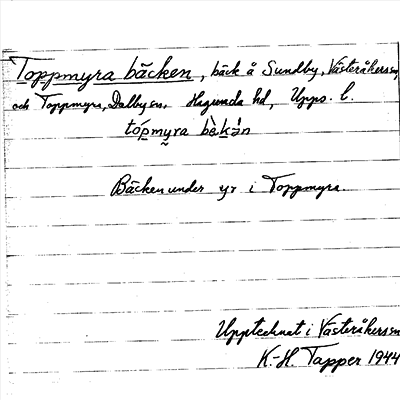 Toppmyra bäcken, bäck å Sundby, Västeråkers sn,
och Toppmyra, Dalby sn, Hagunda hd, Upps. l.
tópmyra bèkän
Bäcken under yr i Toppmyra.
Upptecknat i Västeråkers sn
K.-H. Tapper 1944